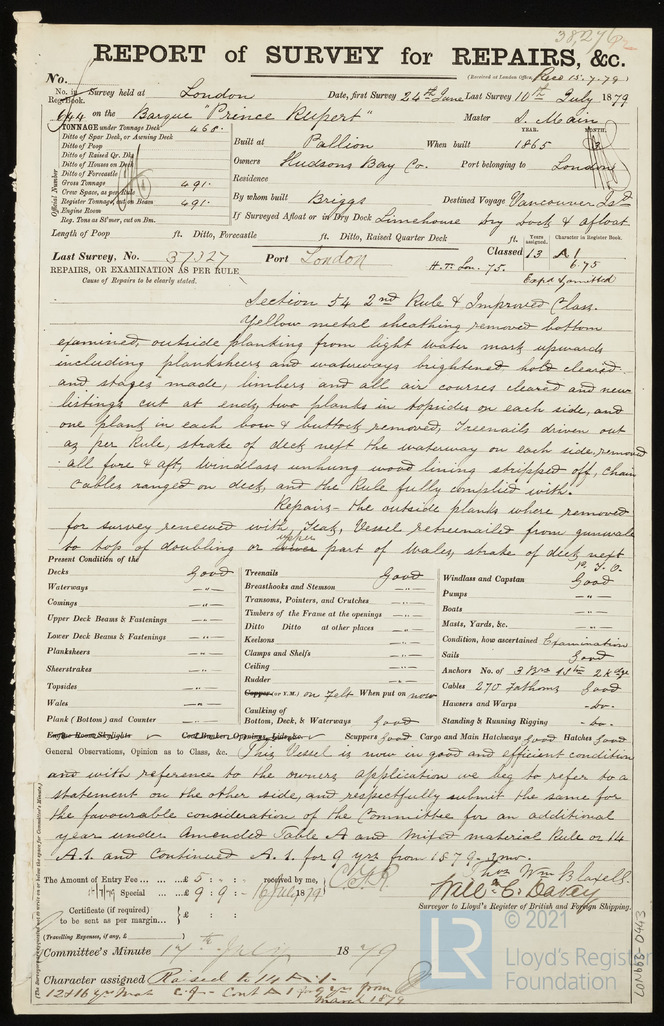 38,276
REPORT of SURVEY for REPAIRS, &c.
(Received at London Office, Recd 15.7.79)
No.
No. in Reg. Book. Survey held at London Date, first Survey 24th June Last Survey 10th July 1879
644 on the Barque "Prince Rupert" Master D. Main
TONNAGE under Tonnage Deck 468.
Ditto of Spar Deck, or Awning Deck
Ditto of Poop
Ditto of Raised Qr. Dk.
Ditto of Houses on Deck
Ditto of Forecastle
Gross Tonnage 491.
Crew Space, as per Rule
Register Tonnage, cut on Beam 491.
Engine Room
Reg. Tons as St'mer, cut on Bm.
Official Number
YEAR. MONTH.
Built at Pallion When built 1865 3
Owners Hudsons Bay Co. Port belonging to London
Residence
By whom built Briggs Destined Voyage Vancouver Isd
If Surveyed Afloat or in Dry Dock Limehouse Dry Dock & afloat
Length of Poop ft. Ditto, Forecastle ft. Ditto, Raised Quarter Deck ft.
Years assigned. Character in Register Book.
Last Survey, No. 37327 Port London Classed 13 A1
H.T. Lon. 75. 6.75
REPAIRS, OR EXAMINATION AS PER RULE Expd & omitted
Cause of Repairs to be clearly stated.
Section 54 2nd Rule & Improved Class.
Yellow metal sheathing removed bottom
examined, outside planking from light water mark upwards
including planksheers and waterways brightened hold cleared
and stages made, limbers and all air courses cleared and new
listings cut at ends, two planks in topsides on each side, and
one plank in each bow & buttock removed, Treenails driven out
as per Rule, strake of deck next the waterway on each side, removed
all fore & aft, Windlass unhung wood lining stripped off, Chain
Cables ranged on deck, and the Rule fully complied with.
Repairs - the outside planks where removed
for survey renewed with Teak, Vessel retreenailed from gunwale
to top of doubling or upper part of wales, strake of deck next
P.T.O.
Present Condition of the
Decks Good
Waterways -"-
Comings -"-
Upper Deck Beams & Fastenings -"-
Lower Deck Beams & Fastenings -"-
Planksheers -"-
Sheerstrakes -"-
Topsides -"-
Wales -"-
Plank (Bottom) and Counter -"-
Treenails Good
Breasthooks and Stemson -"-
Transoms, Pointers, and Crutches -"-
Timbers of the Frame at the openings -"-
Ditto Ditto at other places -"-
Keelsons -"-
Clamps and Shelfs -"-
Ceiling -"-
Rudder -"-
Copper (or Y.M.) on Felt When put on now
Caulking of Bottom, Deck, & Waterways Good
Windlass and Capstan Good
Pumps -"-
Boats -"-
Masts, Yards, &c. -"-
Condition, how ascertained Examination
Sails Good
Anchors No. of 3 Brs 1 Stm 2 Kdge
Cables 270 Fathoms Good
Hawsers and Warps -do-
Standing & Running Rigging -do-
Engine Room Skylights Coal Bunker, Openings, Lids, &c. Scuppers Good Cargo and Main Hatchways Good Hatches Good
General Observations, Opinion as to Class, &c. This Vessel is now in good and efficient condition
and with reference to the owners application we beg to refer to a
statement on the other side, and respectfully submit the same for
the favourable consideration of the Committee for an additional
year under Amended Table A and Mixed material Rule or 14
A.1. and Continued A.1. for 9 yrs from 1879-3 mo.
The Amount of Entry Fee ... £ 5 : - : received by me,
15/7/79 Special ... £ 9 : 9 : - 16 July 1879
Certificate (if required) to be sent as per margin... £ : :
(Travelling Expenses, if any, £ )
Thos Wm Blaxell
Willm C. Davey
Surveyor to Lloyd's Register of British and Foreign Shipping.
Committee's Minute 17th July 1879
Character assigned Raised to 14 A.1.
Cont A 1 for 9 yrs from
March 1879
(The Surveyors are requested not to write on or below the space for Committee's Minute.)
© 2021
LR
Lloyd's Register
Foundation
LON663-0443